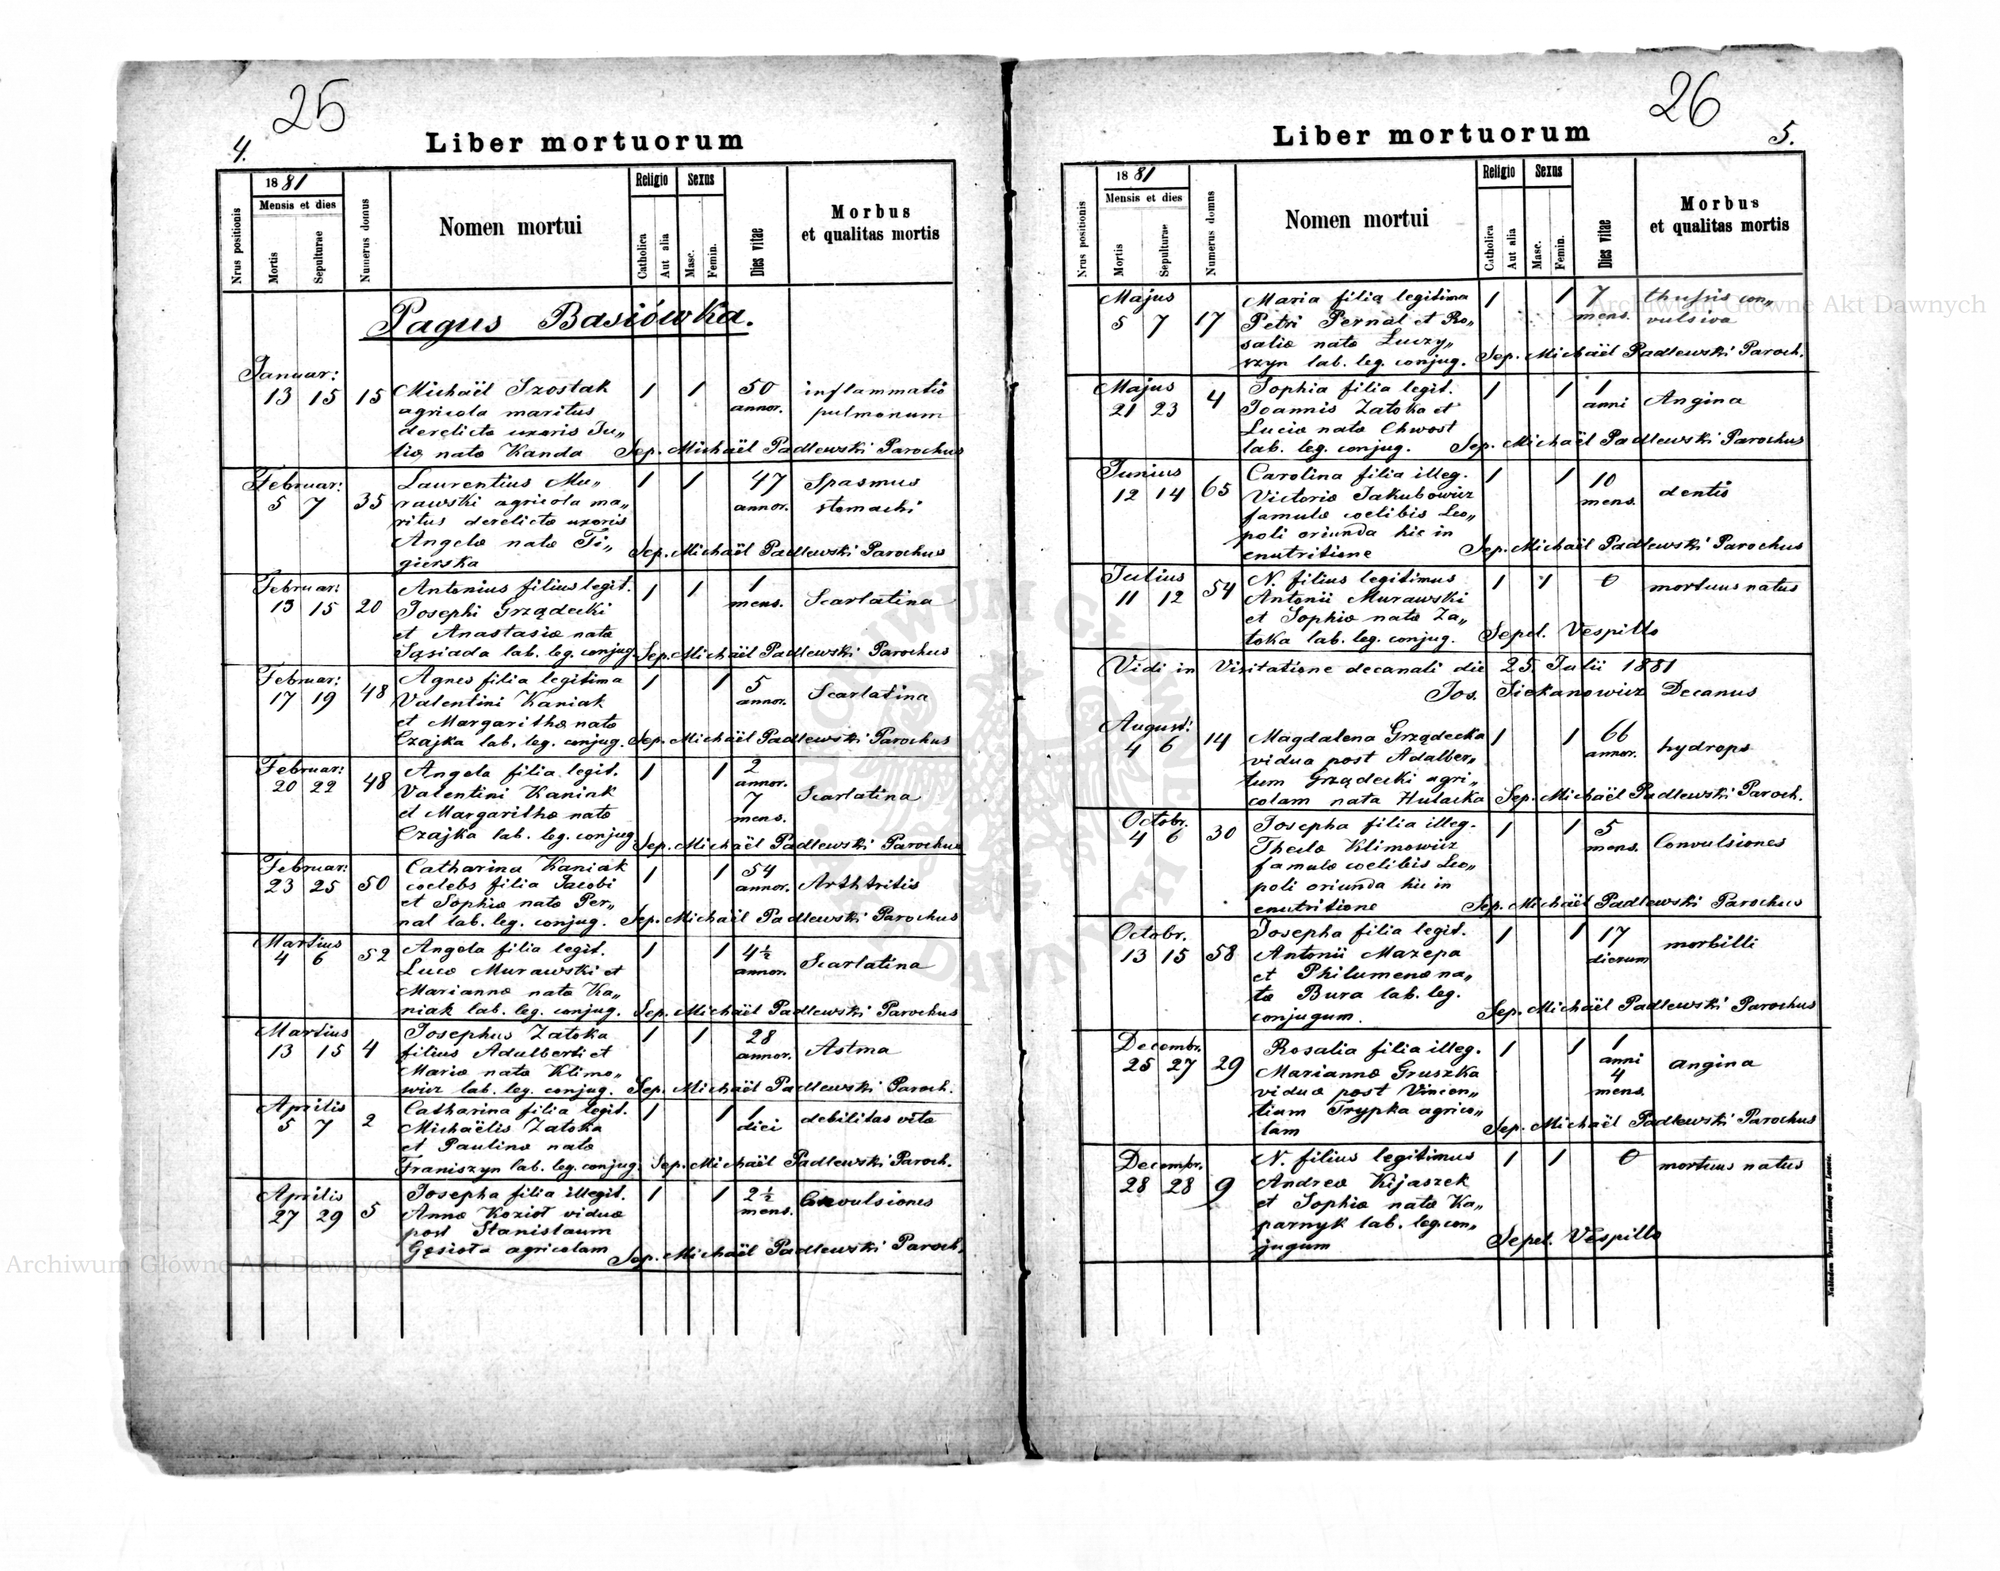 25
4.
Liber mortuorum
Nrus positionis
1881
Mensis et dies
Mortis
Sepulturae
Numerus domus
Nomen mortui
Religio
Catholica
Aut alia
Sexus
Masc.
Femin.
Dies vitae
Morbus
et qualitas mortis
Pagus Basiówka.
Januar:
13 15 15 Michaël Szostak 1 1 50 inflammatio
agricola maritus annor. pulmonum
derelictæ uxoris Ju„
liæ natæ Kanda Sep. Michaël Padlewski Parochus
Februar:
5 7 35 Laurentius Mu„ 1 1 47 Spasmus
rawski agricola ma„ annor. stomachi
ritus derelictæ uxoris
Angelæ natæ Ti„
gierska Sep. Michaël Padlewski Parochus
Februar:
13 15 20 Antonius filius legit. 1 1 1 Scarlatina
Josephi Grządecki mens.
et Anastasiæ natæ
Sąsiada lab. leg. conjug. Sep. Michaël Padlewski Parochus
Februar:
17 19 48 Agnes filia legitima 1 1 5 Scarlatina
Valentini Kaniak annor.
et Margarithæ natæ
Czajka lab. leg. conjug. Sep. Michaël Padlewski Parochus
Februar:
20 22 48 Angela filia legit. 1 1 2 Scarlatina
Valentini Kaniak annor.
et Margarithæ natæ 7
Czajka lab. leg. conjug. mens.
Sep. Michaël Padlewski Parochus
Februar:
23 25 50 Catharina Kaniak 1 1 54 Arthtritis
coelebs filia Jacobi annor.
et Sophiæ natæ Per„
nal lab. leg. conjug. Sep. Michaël Padlewski Parochus
Martius
4 6 52 Angela filia legit. 1 1 4½ Scarlatina
Lucæ Murawski et annor.
Mariannæ natæ Ka„
niak lab. leg. conjug. Sep. Michaël Padlewski Parochus
Martius
13 15 4 Josephus Zatoka 1 1 28 Astma
filius Adalberti et annor.
Mariæ natæ Klimo„
wicz lab. leg. conjug. Sep. Michaël Padlewski Paroch.
Aprilis
5 7 2 Catharina filia legit. 1 1 1 debilitas vitæ
Michaëlis Zatoka diei
et Paulinæ natæ
Franiszyn lab. leg. conjug. Sep. Michaël Padlewski Paroch.
Aprilis
27 29 5 Josepha filia illegit. 1 1 2½ Convulsiones
Annæ Kozioł viduæ mens.
post Stanislaum
Gęsiota agricolam Sep. Michaël Padlewski Paroch.
26
5.
Liber mortuorum
Nrus positionis
1881
Mensis et dies
Mortis
Sepulturae
Numerus domus
Nomen mortui
Religio
Catholica
Aut alia
Sexus
Masc.
Femin.
Dies vitae
Morbus
et qualitas mortis
Majus
5 7 17 Maria filia legitima 1 1 7 thussis con„
Petri Pernal et Ro„ mens. vulsiva
saliæ natæ Luczy„
szyn lab. leg. conjug. Sep. Michaël Padlewski Paroch.
Majus
21 23 4 Sophia filia legit. 1 1 1 Angina
Joannis Zatoka et anni
Luciæ natæ Chwost
lab. leg. conjug. Sep. Michaël Padlewski Parochus
Junius
12 14 65 Carolina filia illeg. 1 1 10 dentis
Victoriæ Jakubowicz mens.
famulæ coelibis Leo„
poli oriunda hic in
enutritione Sep. Michaël Padlewski Parochus
Julius
11 12 54 N. filius legitimus 1 1 0 mortuus natus
Antonii Murawski
et Sophiæ natæ Za„
toka lab. leg. conjug. Sepel. Vespillo
Vidi in Visitatione decanali die 25. Julii 1881
Jos. Siekanowicz Decanus
August:
4 6 14 Magdalena Grządecka 1 1 66 hydrops
vidua post Adalber„ annor.
tum Grządecki agri„
colam nata Hulacka Sep. Michaël Padlewski Paroch.
Octobr.
4 6 30 Josepha filia illeg. 1 1 5 Convulsiones
Theclæ Klimowicz mens.
famulæ coelibis Leo„
poli oriunda hic in
enutritione Sep. Michaël Padlewski Parochus
Octobr.
13 15 58 Josepha filia legit. 1 1 17 morbilli
Antonii Mazepa dierum
et Philumenæ na„
tæ Bura lab. leg.
conjugum. Sep. Michaël Padlewski Parochus
Decembr.
25 27 29 Rosalia filia illeg. 1 1 1 angina
Mariannæ Gruszka anni
viduæ post Vincen„ 4
tium Trypka agrico„ mens.
lam Sep. Michaël Padlewski Parochus
Decembr.
28 28 9 N. filius legitimus 1 1 0 mortuus natus
Andreæ Kijaszek
et Sophiæ natæ Ka„
parnyk lab. leg. con„
jugum Sepel. Vespillo
Nakładem Drukarni Ludowej we Lwowie.
Archiwum Główne Akt Dawnych
Archiwum Główne Akt Dawnych
ARCHIWUM GŁÓWNE AKT DAWNYCH